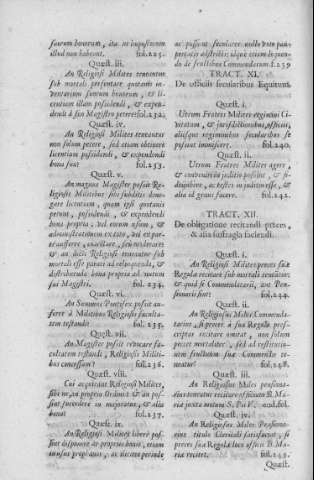 suorum bonorum, ita ut impositorum
illud non habeant. fol.225.
Quæst. iii.
An Religiosi Milites teneantur
sub mortali præsentare quotannis in-
ventarium suorum bonorum, & li-
centiam illum possidendi, & expen-
dendi à suo Magistro petere? fol.232.
Quæst. iv.
An Religiosi Milites teneantur
non solum petere, sed etiam obtinere
licentiam possidendi, & expendendi
bona sua? fol.233.
Quæst. v.
An magnus Magister possit Re-
ligiosis Militibus sibi subditis dene-
gare licentiam, quam ipsi quotannis
petunt, possidendi, & expendendi
bona propria; vel eorum usum, &
administrationem ex toto, vel ex par-
te auferre, coarctare, seu moderare;
& an dicti Religiosi teneantur sub
mortali esse parati ad relinquenda, &
distribuenda bona propria ad nutum
sui Magistri. fol. 234.
Quæst. vi.
An Summus Pontifex possit au-
ferre à Militibus Religiosis faculta-
tem testandi? fol. 235.
Quæst. vii.
An Magister possit revocare fa-
cultatem testandi, Religiosis Militi-
bus concessam? fol.236.
Quæst. viii.
Cui acquirant Religiosi Milites,
sibi ne, an propriis
possint succedere in majoratu, & alia
bona? fol.237.
Quæst. ix.
An Religiosi Milites liberè pos-
sint disponere de propriis bonis, etiam
in usus prophanos, ac decenter periode
ac possint seculares: nullo
pauperibus distributis: idque etiam loquen-
do de fructibus Commendarum? f.239
TRACT. XI.
De officiis secularibus Equitum.
Quæst. i.
Utrum Fratres Milites regimini Ci-
vitatum, & jurisdictionibus, officiis,
aliisque regiminibus secularibus se
possint immiscere. fol.240.
Quæst. ii.
Utrum Fratres Milites agere,
& conveniri in judicio possint, & fi-
dejubere, ac testes in judicio esse, &
alia id genus facere. fol.242.
TRACT. XII.
De obligatione recitandi preces,
& alia suffragia faciendi.
Quæst. i.
An Religiosi Milites preces sua
Regula recitare sub mortali teneantur;
& an quod sic Commendatarii, aut Pen-
sionarii sint? fol.244.
Quæst. ii.
An Religiosus Miles Commenda-
tarius, si preces à sua Regula præ-
scriptas recitare omittat, non solum
peccet mortaliter, sed ad restitutio-
nem fructuum suæ Commendæ te-
neatur? fol.248.
Quæst. iii.
An Religiosus Miles pensiona-
rius teneatur recitare officium B. Ma-
riæ juxta motum S. Pii V. eod. fol.
Quæst. iv.
An Religiosus Miles Pensiona-
rius titulo Clericali satisfaciat, si
preces suæ Regulæ loco officii B. Ma-
riæ recitet. fol.249.
Quæst.